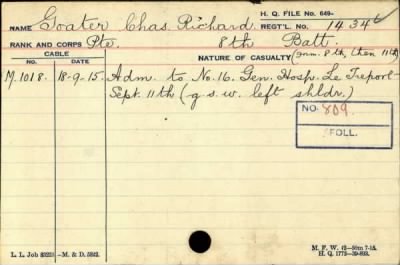 H. Q. FILE No. 649-
NAME Goater Chas. Richard. REGT'L. No. 14346
RANK AND CORPS Pte. 8th Batt.
CABLE NATURE OF CASUALTY (frm. 8th, then 11th)
NO. DATE
M.1018. 18-9-15. Adm. to No. 16. Gen. Hosp. Le Treport-
Sept. 11th (g s.w. left shldr.)
NO. 809.
FOLL.
L. L. Job -M. & D. 5842.
M. F. W. 42-50m 7-18.
H. Q. 1772-39-893.